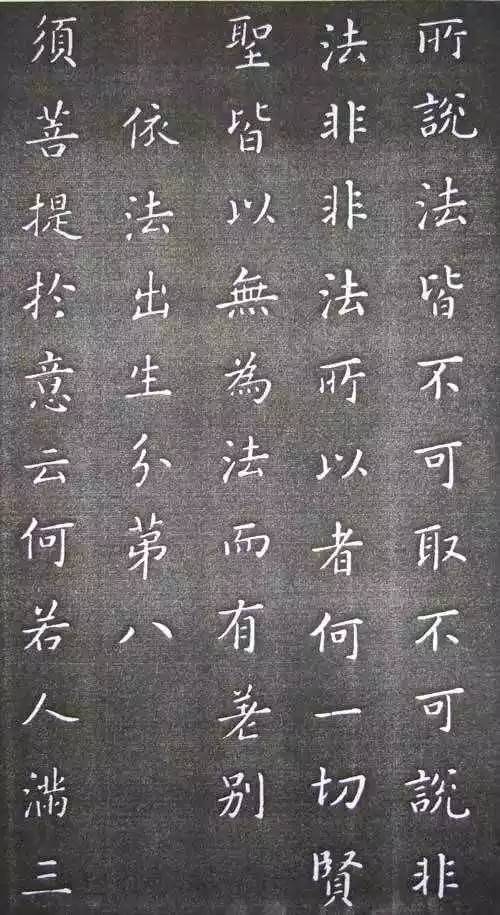 所說法皆不可取不可說非
法非非法所以者何一切賢
聖皆以無為法而有差別
依法出生分苐八
須菩提於意云何若人滿三